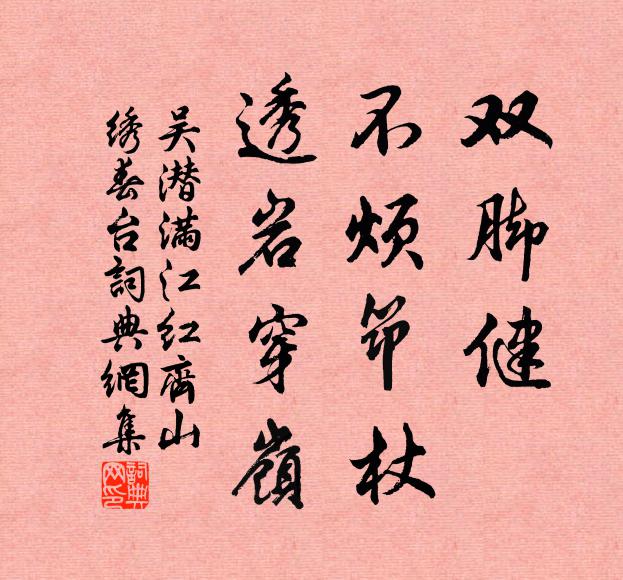 双脚健
不烦笻杖
透岩穿嶺
吴潜满江红齊山
绣春台詞典網集
詞典网印